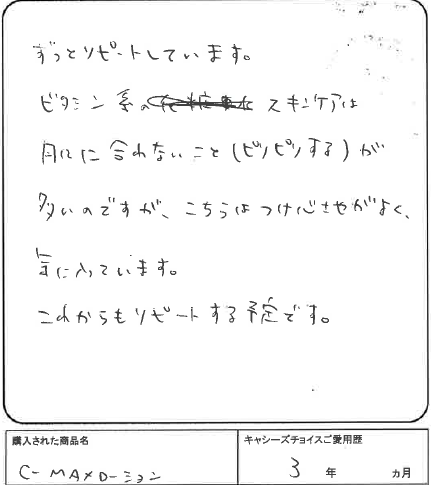 ずっとリピートしています。
ビタミン系の化粧水スキンケアは
肌に合わないこと(ピリピリする)が
多いのですが、こちらはつけ心地がよく、
気に入っています。
これからもリピートする予定です。
購入された商品名
キャシーズチョイスご愛用歴
C-MAXローション
3年 カ月